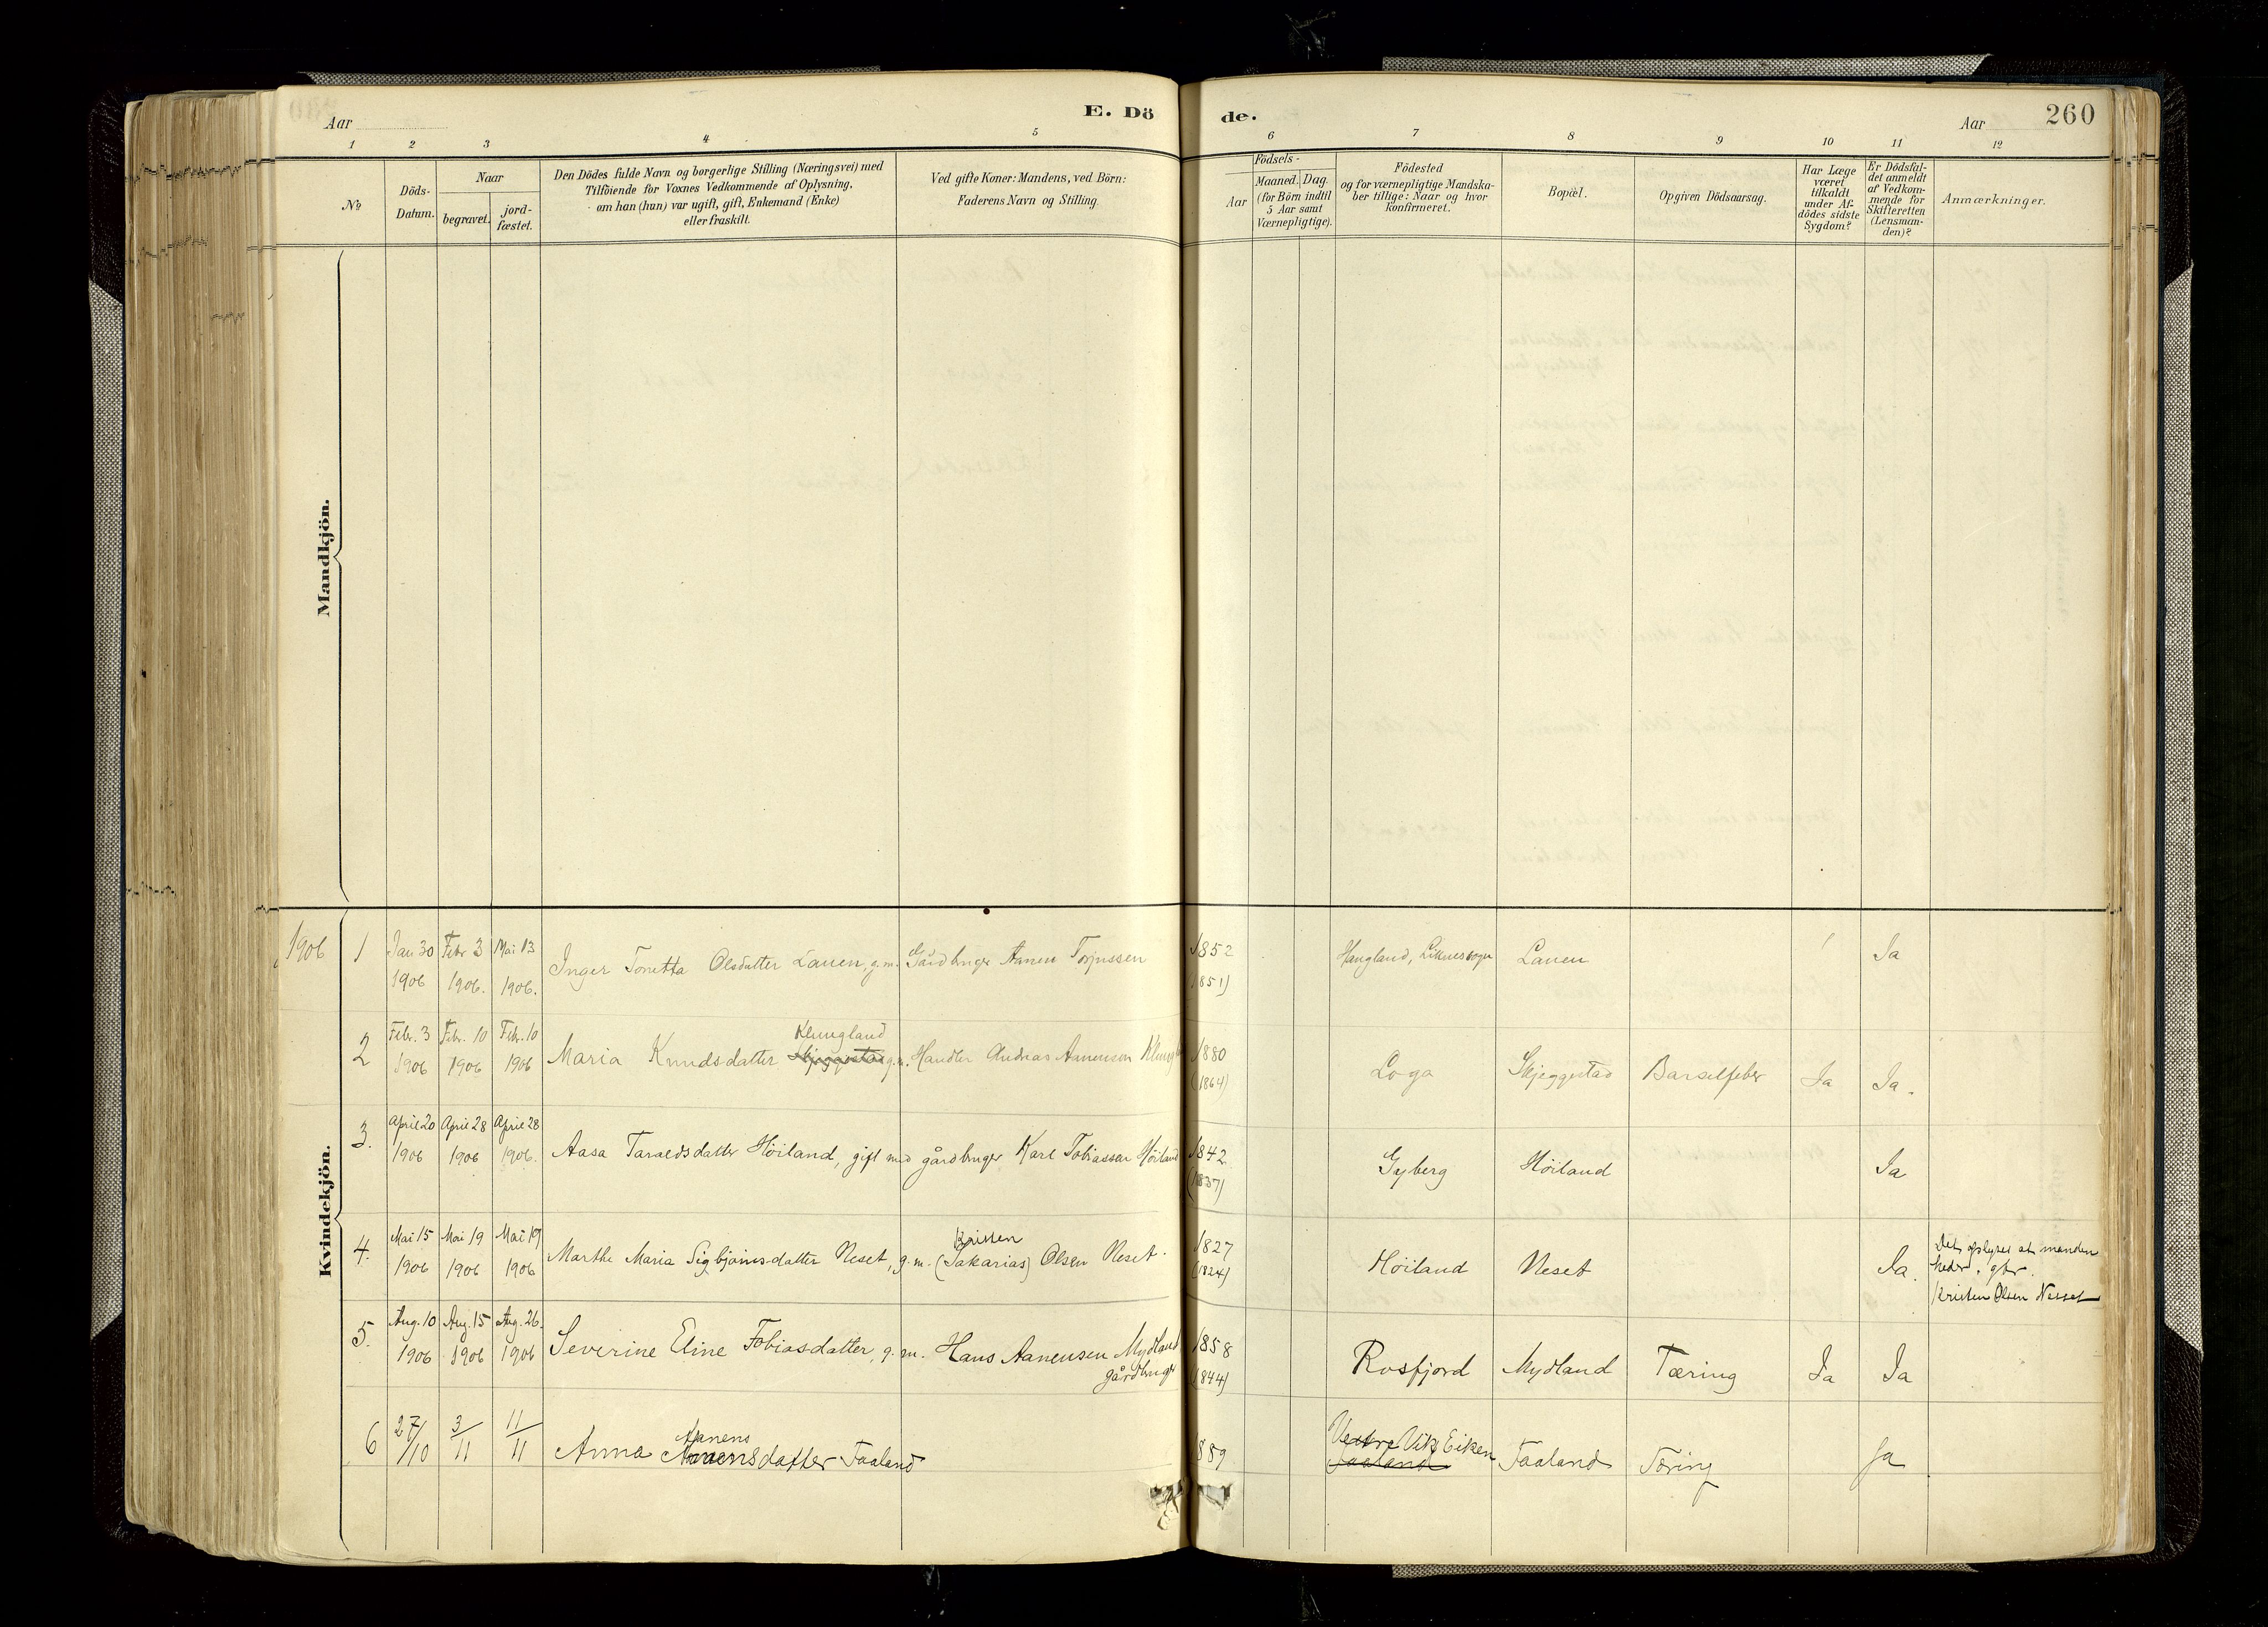 E. Dö
de.
260
Aar
Aar
1 2 3 4 5 6 7 8 9 10 11 12
No
Döds-
Datum.
Naar
begravet.
jord-
fæstet.
Den Dödes fulde Navn og borgerlige Stilling (Næringsvei) med
Tilföiende for Voxnes Vedkommende af Oplysning,
om han (hun) var ugift, gift, Enkemand (Enke)
eller fraskilt.
Ved gifte Koner: Mandens, ved Börn:
Faderens Navn og Stilling.
Födsels-
Aar
Maaned. Dag.
(for Börn indtil
5 Aar samt
Værnepligtige).
Födested
og for værnepligtige Mandska-
ber tillige: Naar og hvor
konfirmeret.
Bopæl.
Opgiven Dödsaarsag.
Har Læge
været
tilkaldt
under Af-
dödes sidste
Sygdom?
Er Dödsfal-
det anmeldt
af Vedkom-
mende for
Skifteretten
(Lensman-
den)?
Anmærkninger.
Mandkjön.
Kvindekjön.
1906 1 Jan 30 Febr 3 Mai 13
1906 1906. 1906.
Inger Tonetta Olsdatter Lauen, g.m. Gårdbruger Aanen Torjussen 1852
(1851)
Haugland, Liknes sogn Lauen Ja
2 Febr. 3 Febr. 10 Febr. 10
1906 1906 1906
Klungland
Maria Knudsdatter Skjeggestad g.m. Handler Andreas Aanensen 1880
(1864)
Loga Skjeggestad Barselfeber Ja Ja.
3. April 20 April 28 April 28
1906 1906 1906.
Aasa Taraldsdatter Höiland, gift med gårdbruger Karl Tobiassen Höiland 1842
(1837)
Gyberg Höiland Ja
4. Mai 15 Mai 19 Mai 19
1906 1906 1906
Kristen
Marthe Maria Sigbjörnsdatter Neset, g.m. (Sakarias) Olsen Neset. 1827
(1824)
Höiland Neset Ja.
Det oplyses at manden
heder gbr.
Kristen Olsen Nesset
5. Aug. 10 Aug. 15 Aug. 26.
1906 1906 1906
Severine Eline Tobiasdatter, g.m. Hans Aanensen Mydland
gårdbruger
1858
(1844)
Rosfjord Mydland Tæring Ja Ja
6 27/10 3/11 11/11
Aanens
Anna Aanensdatter Faaland 1889
Vestre Vik, Eiken
Faaland
Faaland Tæring Ja